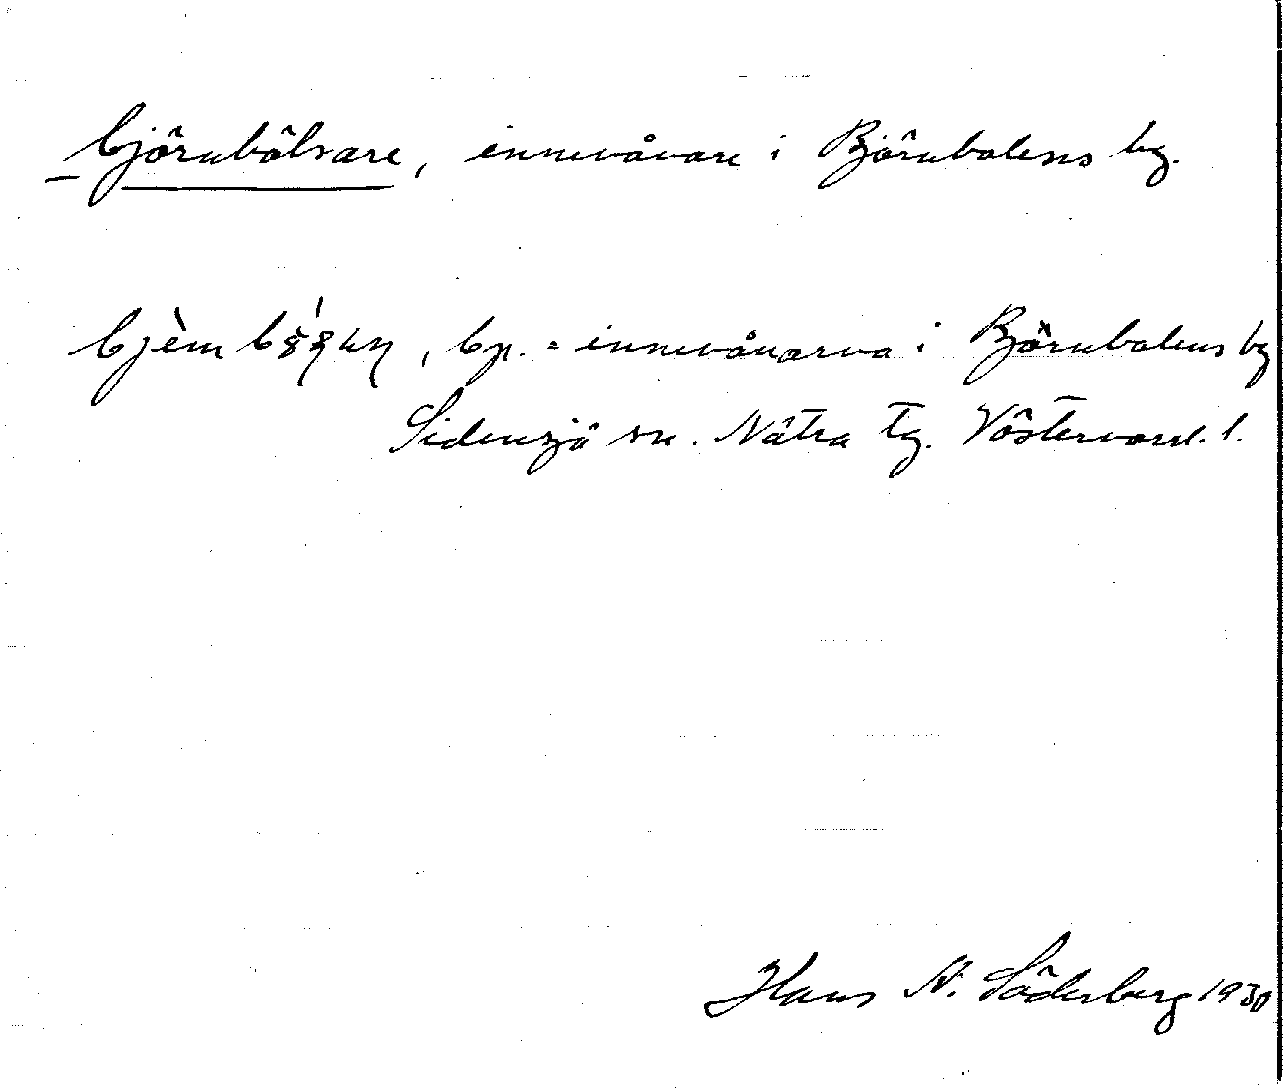 björnbölsare, innevånare i Björnbölens by.
bp. = innevånarna i Björnbölens by
Sidensjö sn. Nätra tg. Västernorrl. l.
Hans N. Söderberg 1930